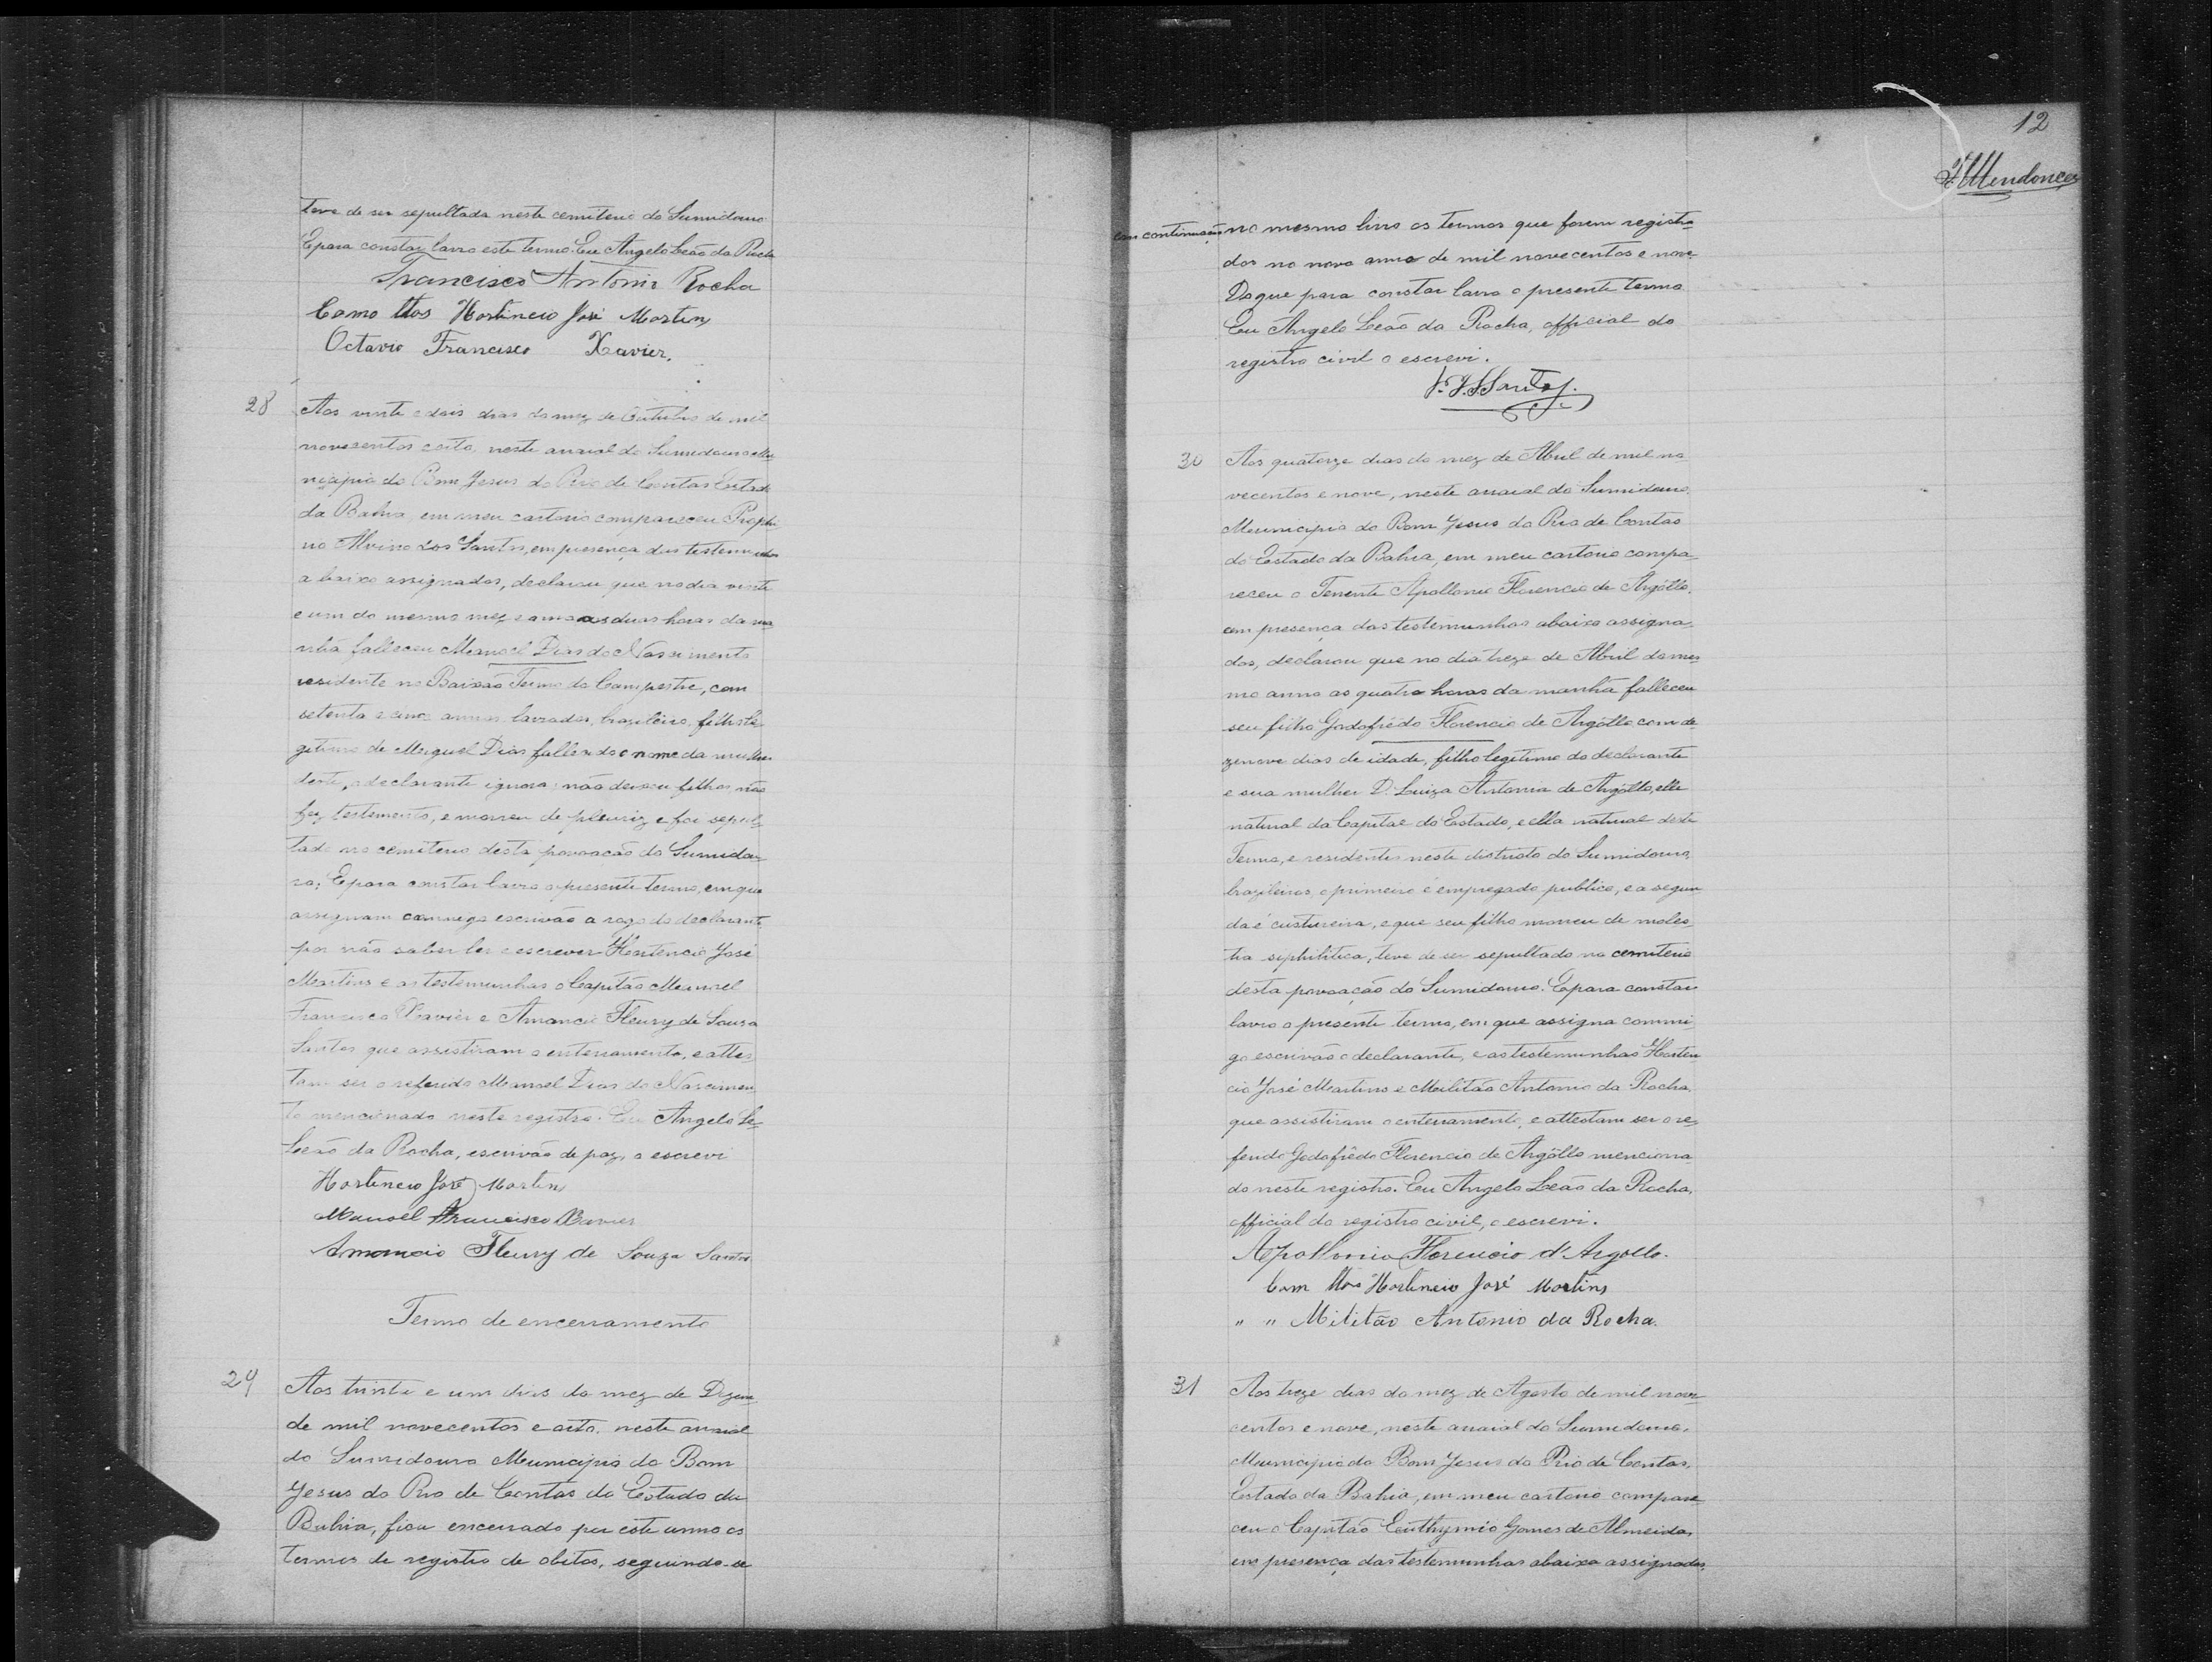 teve de ser sepultada neste cemiterio do Sumidouro
E para constar lavro este termo. Eu Angelo Leão da Rocha
Francisco Antonio Rocha
Como ttas Hortencio José Martins
Octavio Francisco Xavier.
28
Aos vinte e dois dias do mez de Outubro de mil
novecentos e oito, neste arraial do Sumidouro Mu
nicipio do Bom Jesus do Rio de Contas Estado
da Bahia, em meu cartorio compareceu
no Alvino dos Santos, em presença das testemunhas
a baixo assignados, declarou que no dia vinte
e um do mesmo mez e anno as duas horas da ma
nhã falleceu Manoel Dias do Nascimento
residente no Baixão Termo do Campestre, com
setenta e cinco annos lavrador, brazileiro, filho le
gitimo de Miguel Dias fallecido e nome da mulher
deste, o declarante ignora; não deixou filhos não
fez testemento, e morreu de pleuriz e foi sepul
tado no cemiterio desta povoação do Sumidou
ro; E para constar lavro o presente termo, em que
assignam commigo escrivão a rogo do declarante
por não saber ler e escrever Hortencio José
Martins e as testemunhas o Capitão Manoel
Francisco Xavier e Amancio Fleury de Sousa
Santos que assistiram o enterramento, e attes
tam ser o referido Manoel Dias do Nascimen
to mencionado neste registro. Eu Angelo Le
Leão da Rocha, escrivão de paz, o escrevi
Hortencio José Martins
Manoel Francisco Xavier
Amancio Fleury de Souza Santos
Termo de encerramento
29
Aos trinta e um dias do mez de Dezem
de mil novecentos e oito, neste arraial
do Sumidouro Municipio do Bom
Jesus do Rio de Contas do Estado da
Bahia, fica encerrado por este anno os
termos de registro de obitos, seguindo-se
12
Mendonça
em continuação no mesmo livro os termos que forem registra
dos no novo anno de mil novecentos e nove
Do que para constar lavro o presente termo
Eu Angelo Leão da Rocha, official do
registro civil o escrevi.
30
Aos quatorze dias do mez de Abril de mil no
vecentos e nove, neste arraial do Sumidouro
Municipio do Bom Jesus do Rio de Contas
do Estado da Bahia, em meu cartorio compa
receu o Tenente Apollonio Florencio de Argôllo,
em presença das testemunhas abaixo assigna
dos, declarou que no dia treze de Abril do mes
mo anno as quatro horas da manhã falleceu
seu filho Godofrêdo Florencio de Argôllo com de
zenove dias de idade, filho legitimo do declarante
e sua mulher D. Luiza Antonia de Argôllo, elle
natural da Capital do Estado, e ella natural deste
Termo, e residentes neste districto do Sumidouro,
brazileiros, o primeiro é empregado publico, e a segun
da é custureira, e que seu filho morreu de moles
tia siphilitica, teve de ser sepultado no cemiterio
desta povoação do Sumidouro. E para constar
lavro o presente termo, em que assigna commi
go escrivão o declarante, e as testemunhas Horten
cio José Martins e Militão Antonio da Rocha
que assistiram o enterramento, e attestam ser o re
ferido Godofrêdo Florencio de Argôllo menciona
do neste registro. Eu Angelo Leão da Rocha,
official do registro civil, o escrevi.
Apollonio Florencio d'Argollo.
Com ttas Hortencio José Martins
" " Militão Antonio da Rocha.
31
Aos treze dias do mez de Agosto de mil nove
centos e nove, neste arraial do Sumidouro,
Municipio do Bom Jesus do Rio de Contas,
Estado da Bahia, em meu cartorio compare
ceu o Capitão Euthymio Gomes de Almeida,
em presença das testemunhas abaixo assignados,